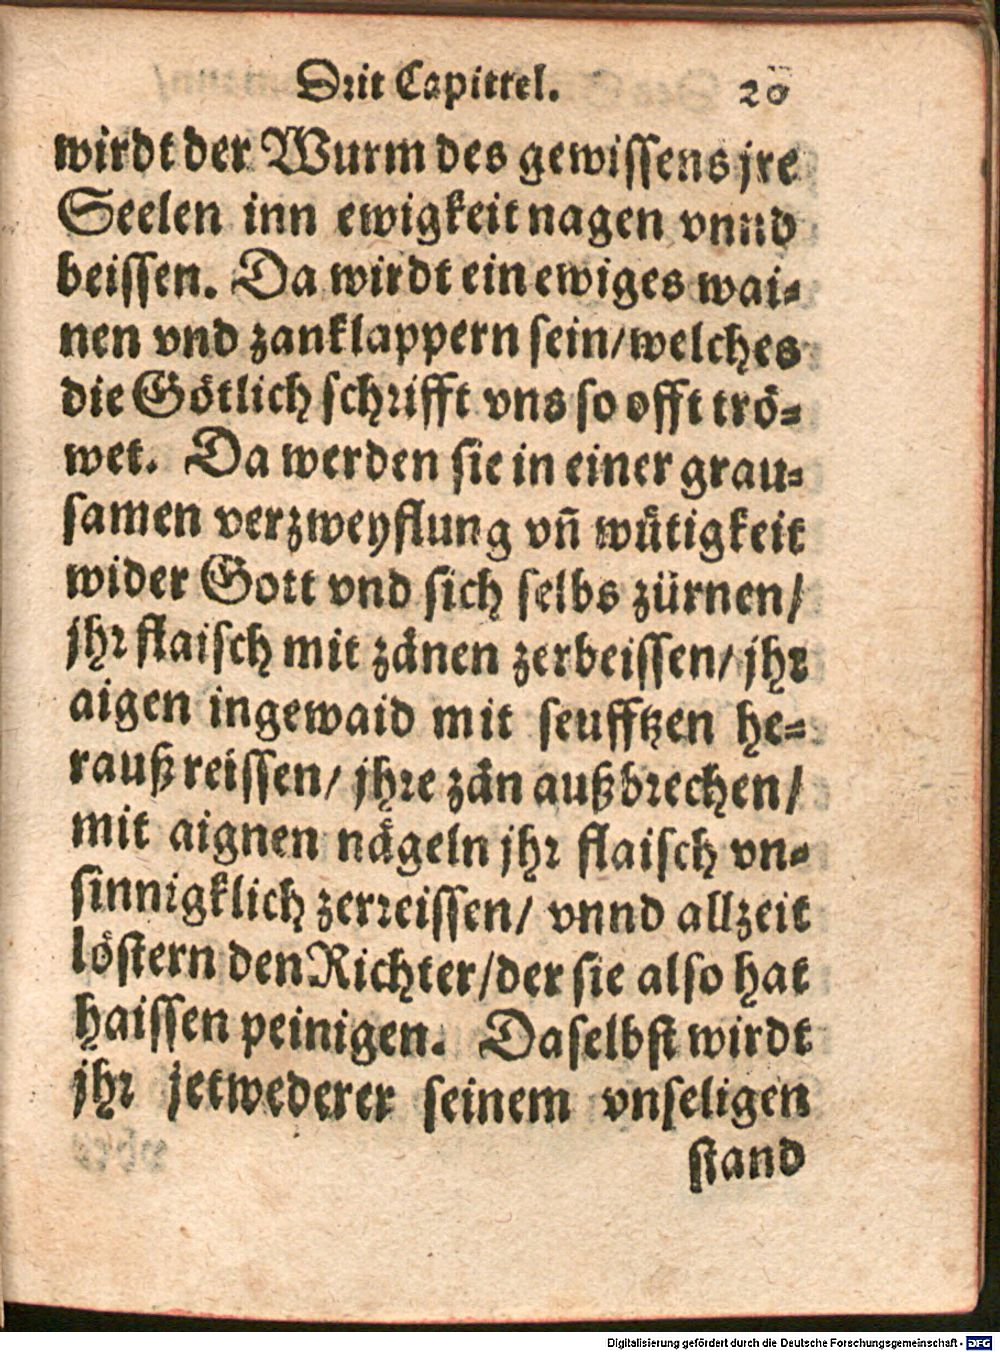 Drit Capittel. 20
wirdt der Wurm des gewissens jre
Seelen inn ewigkeit nagen vnnd
beissen. Da wirdt ein ewiges wai-
nen vnd zanklappern sein/welches
die Götlich schrifft vns so offt trö-
wet. Da werden sie in einer grau-
samen verzweyflung vñ wütigkeit
wider Gott vnd sich selbs zürnen/
jhr flaisch mit zänen zerbeissen/ jhr
aigen ingewaid mit seufftzen he-
rauß reissen/ jhre zän außbrechen/
mit aignen nägeln jhr flaisch vn-
sinnigklich zerreissen/ vnnd allzeit
löstern den Richter/der sie also hat
haissen peinigen. Daselbst wirdt
jhr jetwederer seinem vnseligen
stand
Digitalisierung gefördert durch die Deutsche Forschungsgemeinschaft - DFG